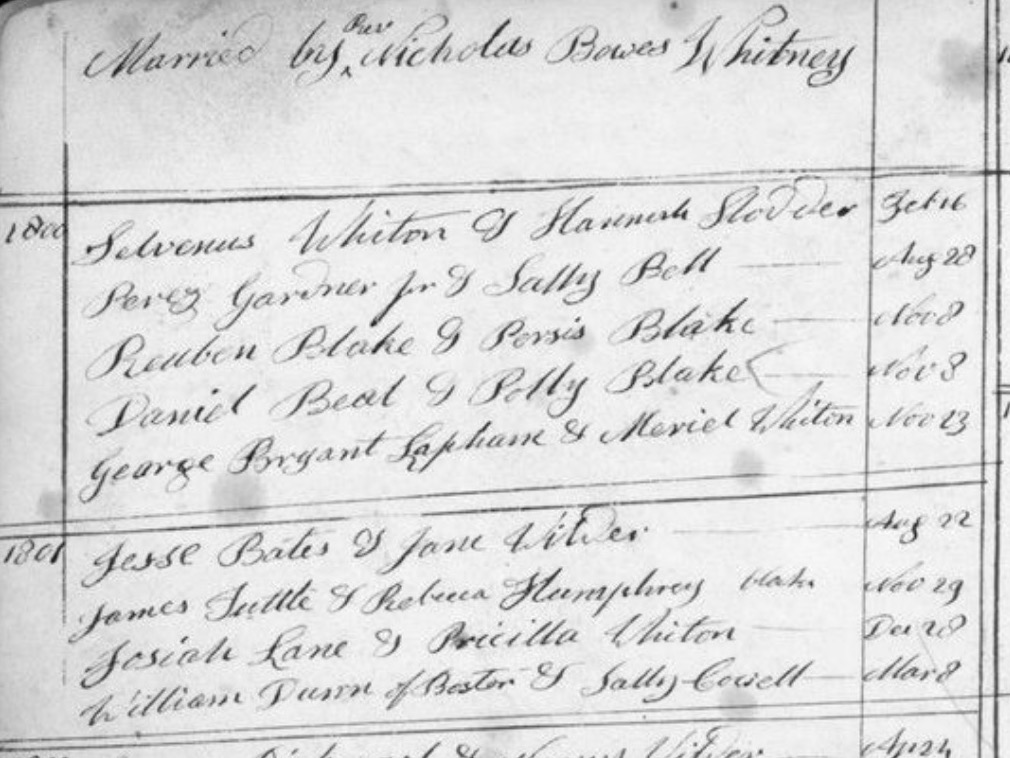 Married by Rev Nicholas Bowes Whitney
1800 Selvenus Whiton & Hannah Stodder Feb 16
Perez Gardner Jr & Sally Bell Aug 28
Reuben Blake & Persis Blake Nov 8
Daniel Beal & Polly Blake Nov 8
George Bryant Lapham & Meriel Whiton Nov 23
1801 Jesse Bates & Jane Wilder Aug 22
James Tuttle & Rebecca Humphrey blake Nov 29
Josiah Lane & Pricilla Whiton Dec 28
William Dunn of Boston & Sally Cowell Mar 8
& Wilder